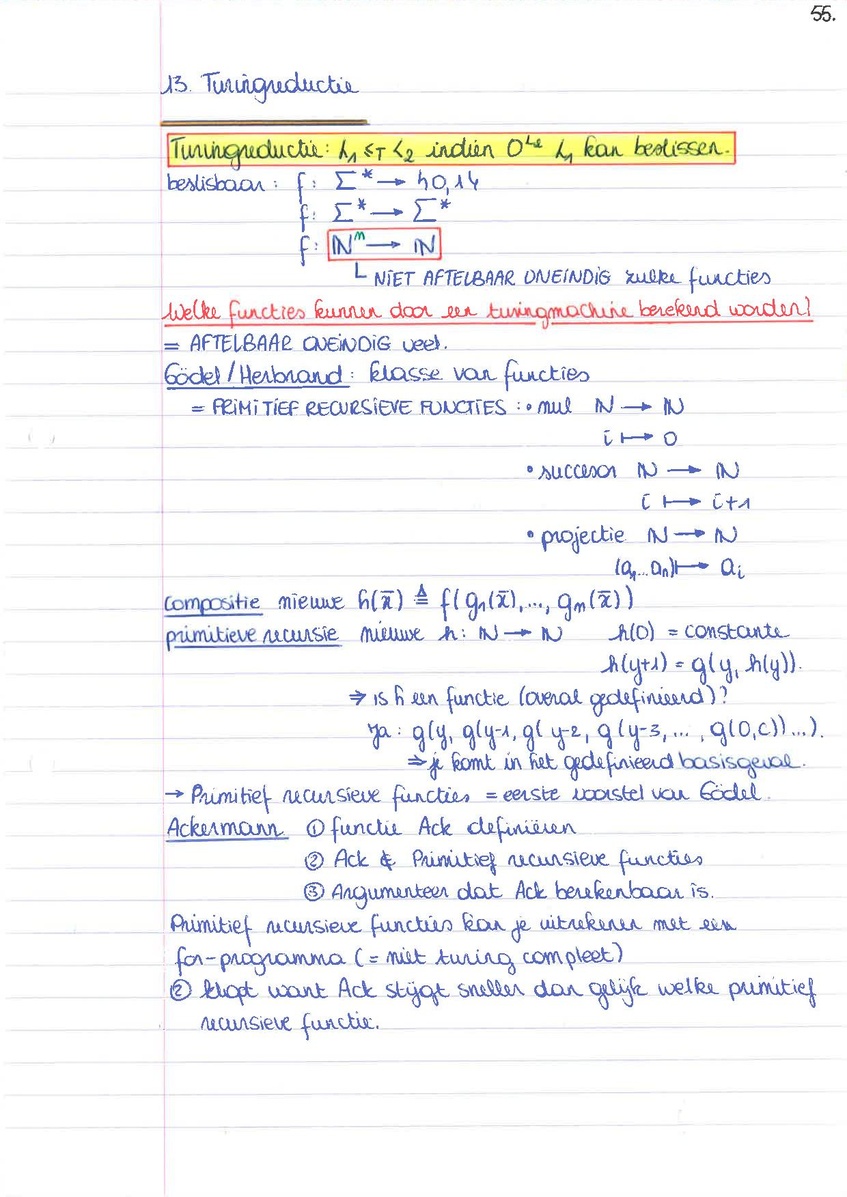 55.
13. Turingreductie
Turingreductie: L₁ ≤T L₂ indien O^L₂ L₁ kan beslissen.
beslisbaar: f: Σ* → {0,1}
f: Σ* → Σ*
f: ℕⁿ → ℕ
└ NIET AFTELBAAR ONEINDIG zulke functies
Welke functies kunnen door een turingmachine berekend worden?
= AFTELBAAR ONEINDIG veel.
Gödel/Herbrand: klasse van functies
= PRIMITIEF RECURSIEVE FUNCTIES: • nul ℕ → ℕ
i ↦ 0
• succesor ℕ → ℕ
i ↦ i+1
• projectie ℕ → ℕ
(a₁...aₙ) ↦ aᵢ
compositie nieuwe h(x̄) ≜ f(g₁(x̄),..., gₘ(x̄))
primitieve recursie nieuwe h: ℕ → ℕ h(0) = constante
h(y+1) = g(y, h(y)).
⇒ is h een functie (overal gedefinieerd)?
Ja: g(y, g(y-1, g(y-2, g(y-3, ... , g(0,c))...).
⇒ je komt in het gedefinieerd basisgeval.
→ Primitief recursieve functies = eerste voorstel van Gödel.
Ackermann ① functie Ack definiëren
② Ack ∉ Primitief recursieve functies
③ Argumenteer dat Ack berekenbaar is.
Primitief recursieve functies kan je uitrekenen met een
for-programma (= niet turing compleet)
② klopt want Ack stijgt sneller dan gelijk welke primitief
recursieve functie.